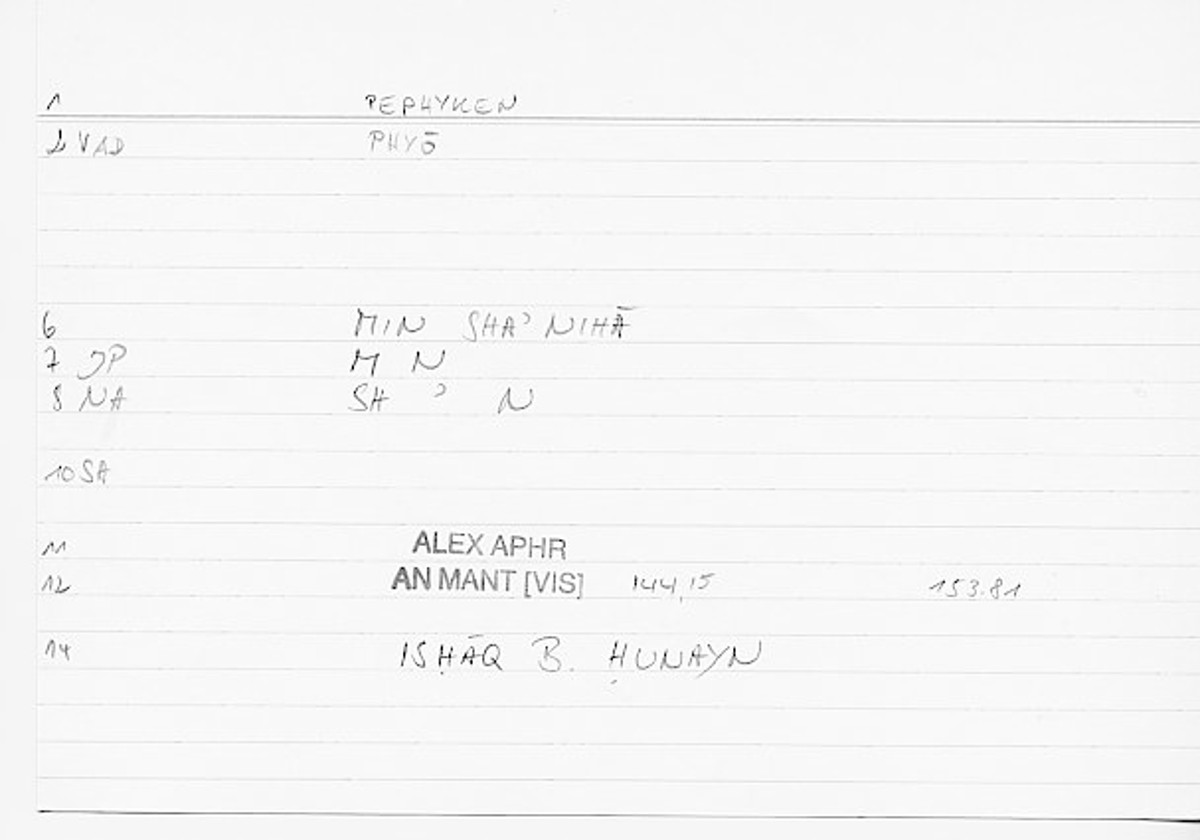 1 PEPHYKEN
2 VAD PHYŌ
6 MIN SHAʾNIHĀ
7 JP M N
8 NA SH ʾ N
10 SA
11 ALEX APHR
12 AN MANT [VIS] 144,15 153.81
14 ISḤĀQ B. ḤUNAYN